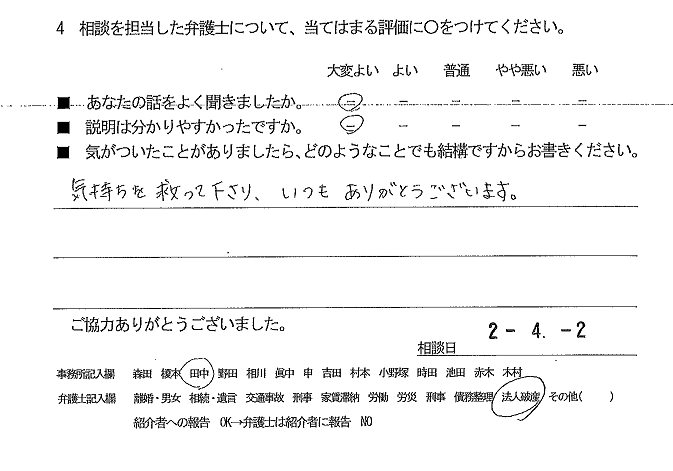 4 相談を担当した弁護士について、当てはまる評価に○をつけてください。
大変よい よい 普通 やや悪い 悪い
■ あなたの話をよく聞きましたか。 － － － － －
■ 説明は分かりやすかったですか。 － － － － －
■ 気がついたことがありましたら、どのようなことでも結構ですからお書きください。
気持ちを救って下さり、いつもありがとうございます。
ご協力ありがとうございました。
相談日 2 - 4. - 2
事務所記入欄 森田 榎本 田中 野田 相川 眞中 申 吉田 村本 小野塚 時田 池田 赤木 木村
弁護士記入欄 離婚・男女 相続・遺言 交通事故 刑事 家賃滞納 労働 労災 刑事 債務整理 法人破産 その他( )
紹介者への報告 OK→弁護士は紹介者に報告 NO